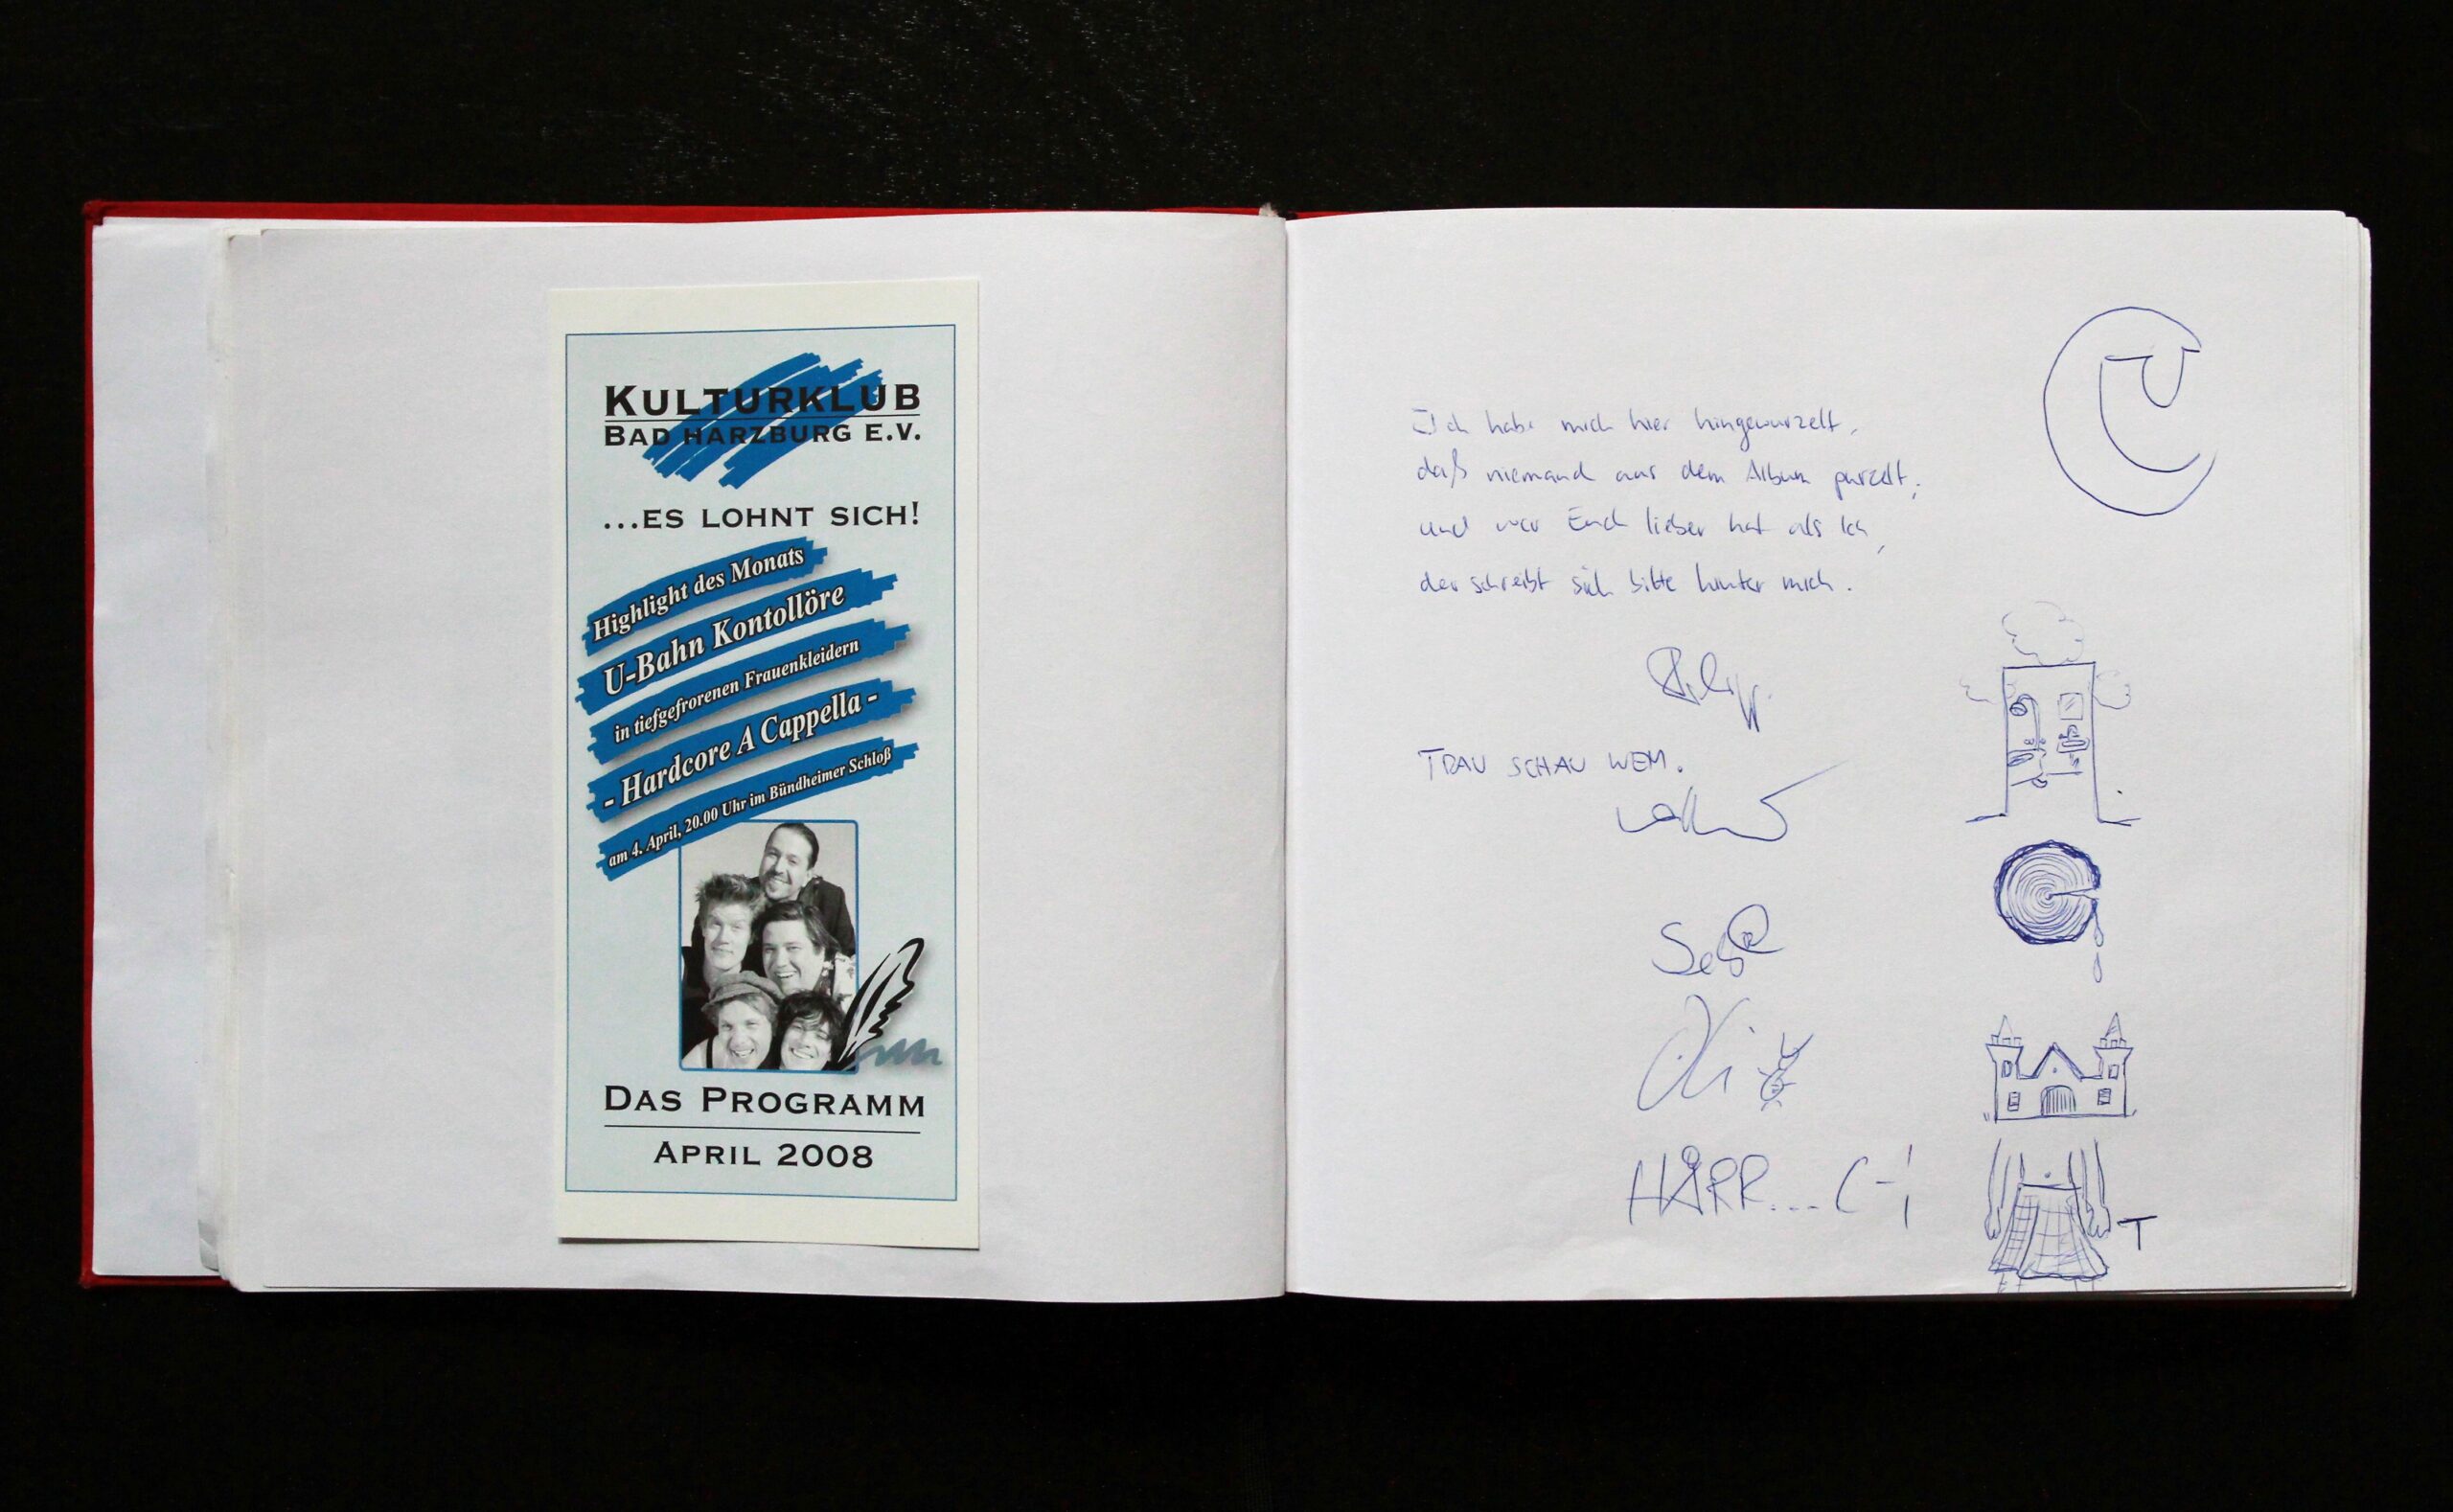 KULTURKLUB
BAD HARZBURG E.V.
...ES LOHNT SICH!
Highlight des Monats
U-Bahn Kontollöre
in tiefgefrorenen Frauenkleidern
- Hardcore A Cappella -
am 4. April, 20.00 Uhr im Bündheimer Schloß
DAS PROGRAMM
APRIL 2008
Ich habe mich hier hingewurzelt,
daß niemand aus dem Album purzelt,
und wer Euch lieber hat als Ich,
der schreibt sich bitte hinter mich.
Philipp.
TRAU SCHAU WEM.
HÅRR...
T